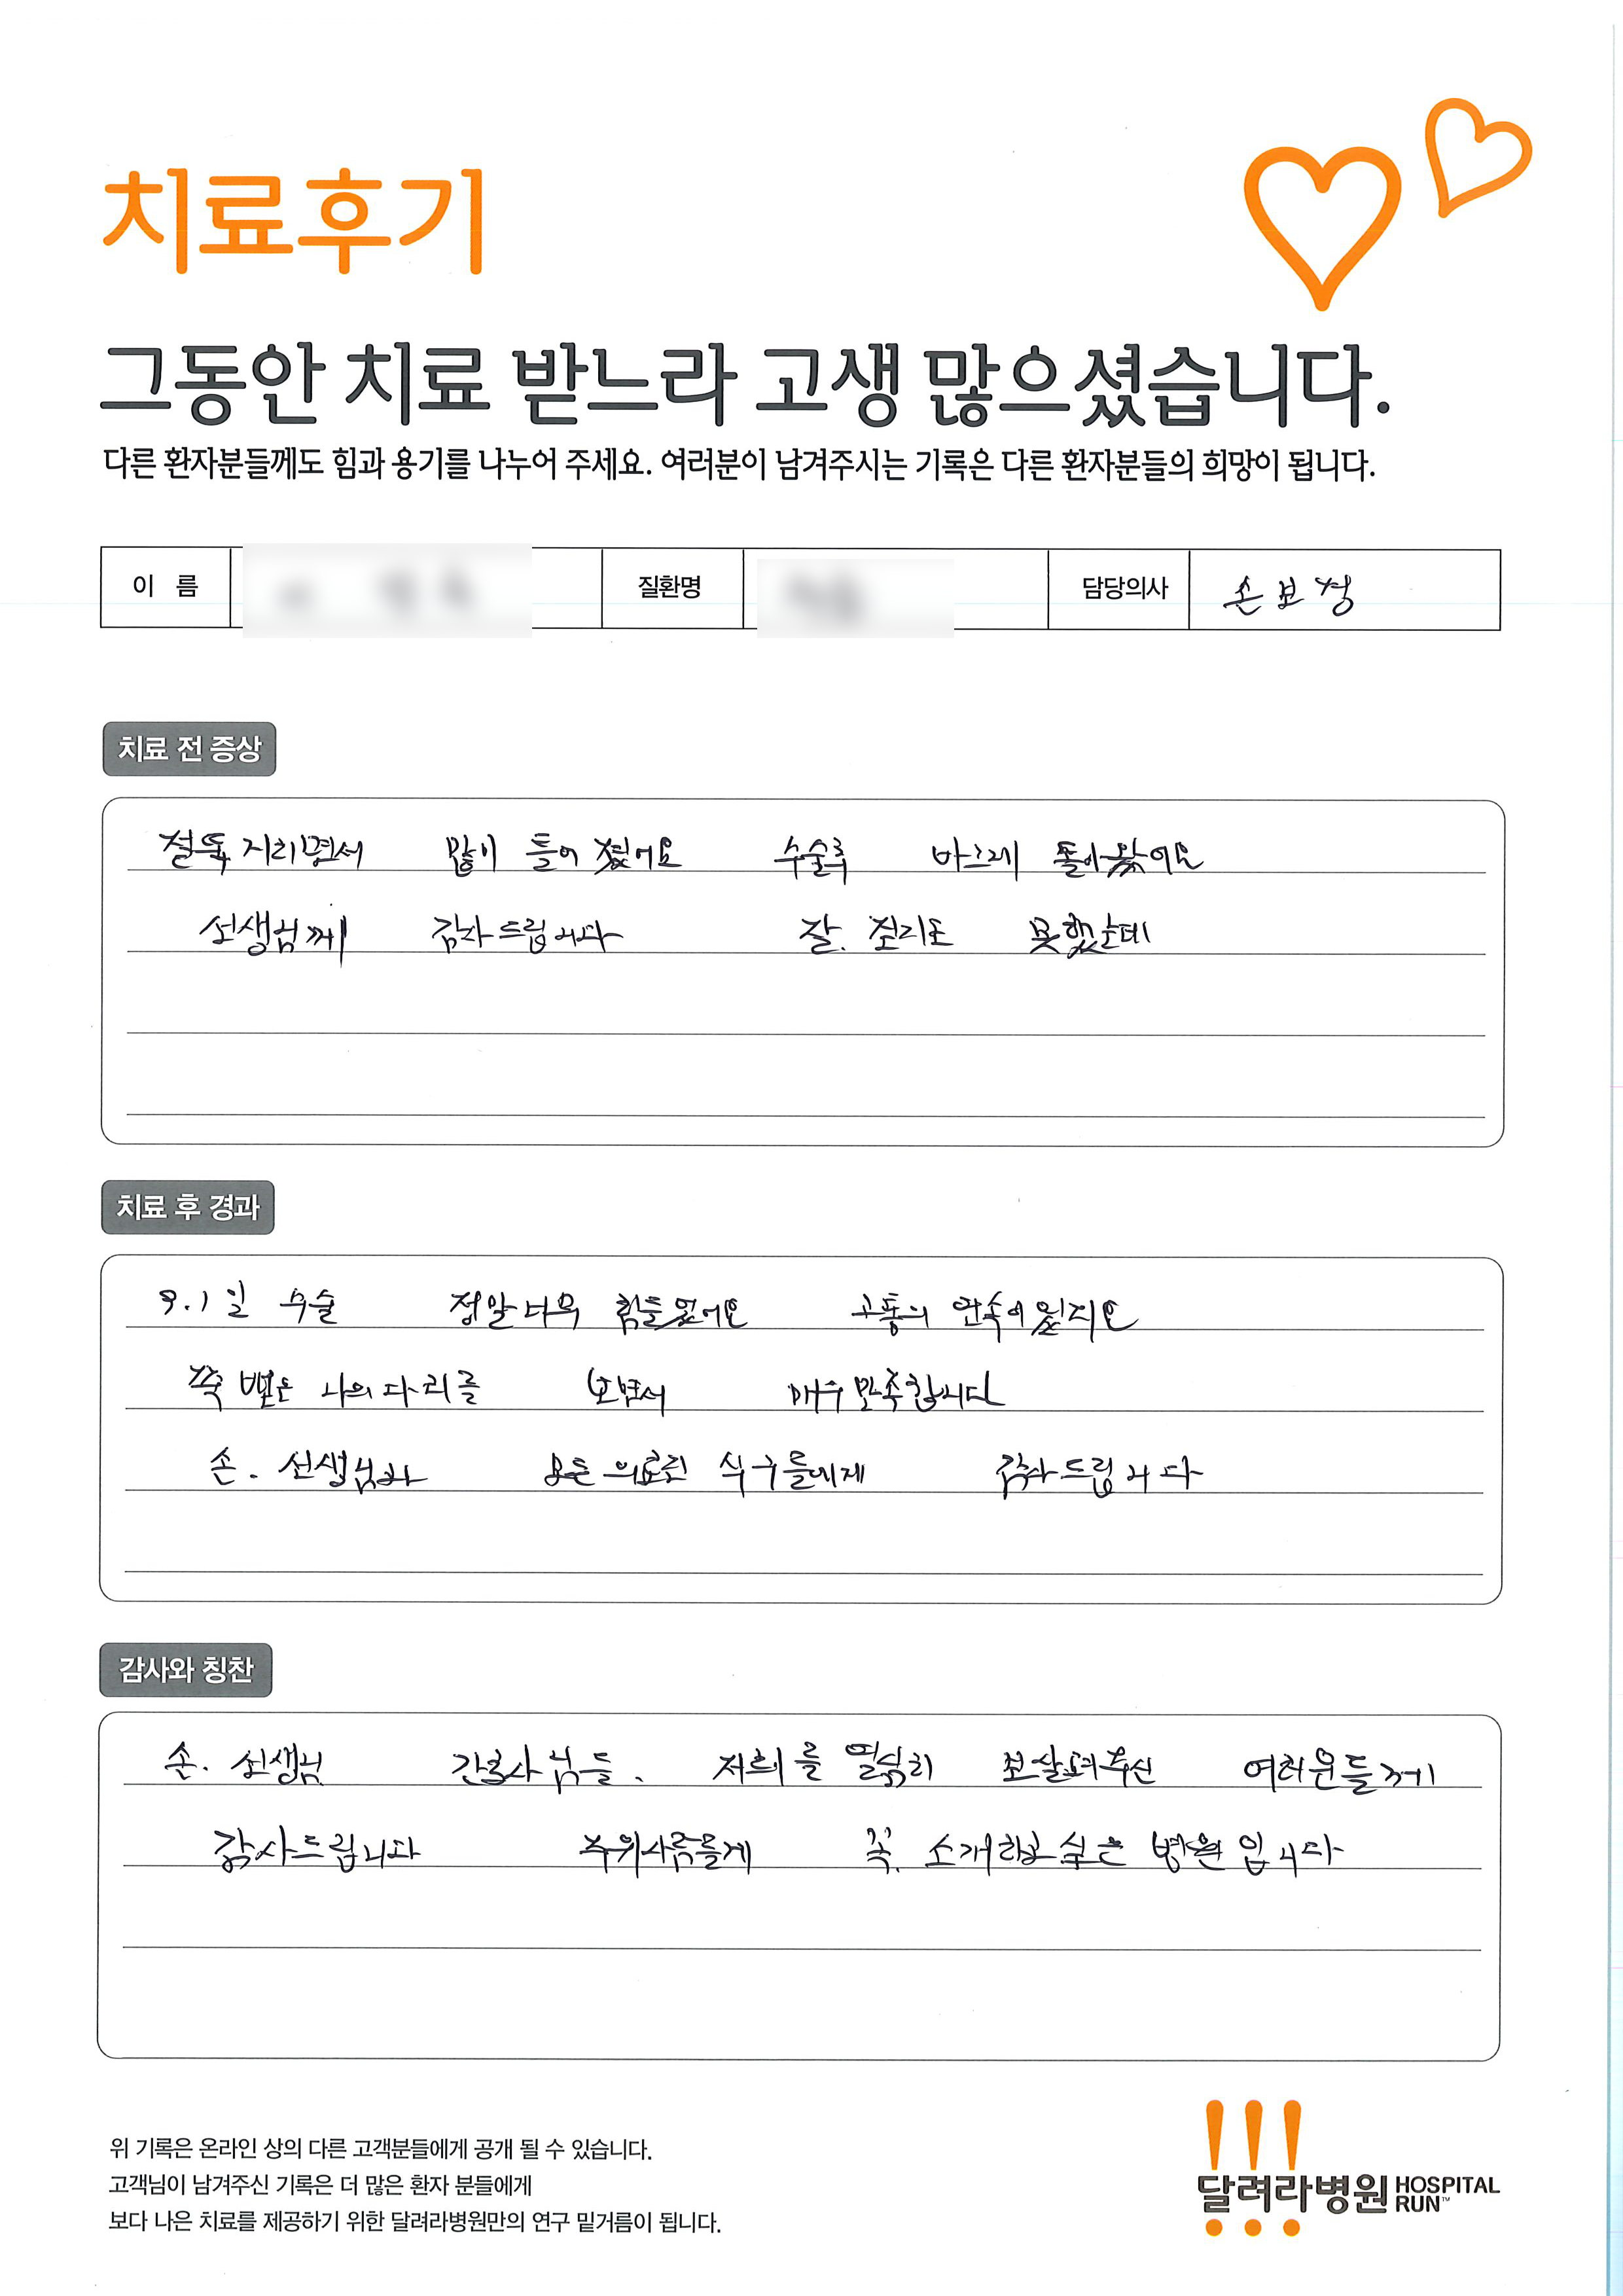 치료후기
그동안 치료 받느라 고생 많으셨습니다.
다른 환자분들께도 힘과 용기를 나누어 주세요. 여러분이 남겨주시는 기록은 다른 환자분들의 희망이 됩니다.
이 름 질환명 담당의사 손보경
치료 전 증상
절뚝 거리면서 많이 틀어 졌었어요 수술후 바르게 돌아왔어요
선생님께 감사드립니다 잘. 걷지도 못했는데
치료 후 경과
9.1일 수술 정말너무 힘들었어요 고통의 연속이었지요
쭉 뻗은 나의다리를 보면서 매우만족합니다
손. 선생님과 모든 의료진 식구들에게 감사드립니다
감사와 칭찬
손. 선생님 간호사님들. 저희를 열심히 보살펴주신 여러분들께
감사드립니다 주위사람들게 꼭. 소개하고 싶은 병원입니다
위 기록은 온라인 상의 다른 고객분들에게 공개 될 수 있습니다.
고객님이 남겨주신 기록은 더 많은 환자 분들에게
보다 나은 치료를 제공하기 위한 달려라병원만의 연구 밑거름이 됩니다.
달려라병원 HOSPITAL RUN™